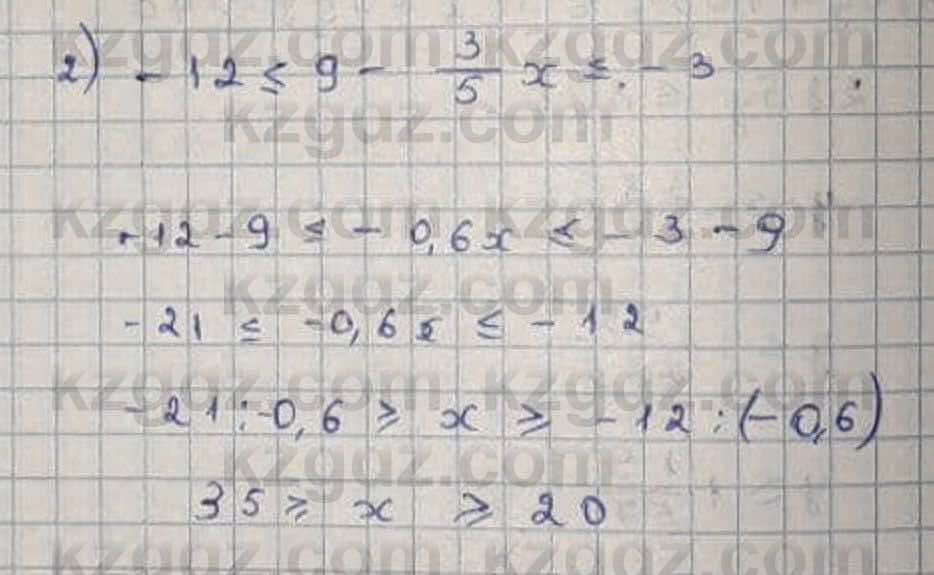 kzgdz.com kzgdz.com
2) -12 ≤ 9 - 3/5 x ≤ -3
kzgdz.com
kzgdz.com kzgdz.com
-12-9 ≤ -0,6x ≤ -3-9
kzgdz.com
-21 ≤ -0,6x ≤ -12
kzgdz.com kzgdz.com
-21:-0,6 ≥ x ≥ -12:(-0,6)
kzgdz.com
35 ≥ x ≥ 20
kzgdz.com kzgdz.com